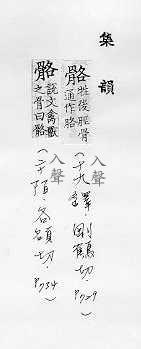 集韻
骼 牲後脛骨
通作胳
入聲
(十九鐸．剛鶴切．P729)
骼 說文禽獸
之骨曰骼
入聲
(二十陌．各額切．P734)